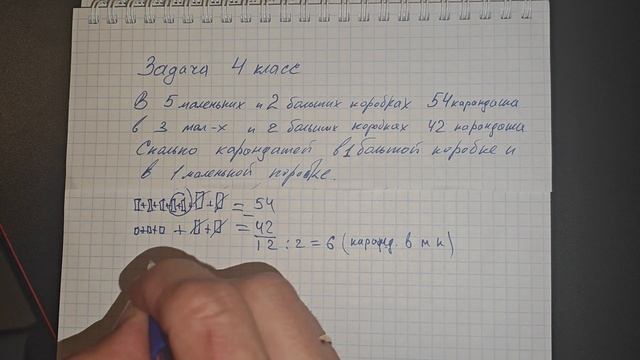 Задача 4 класс
В 5 маленьких и 2 больших коробках 54 карандаша
в 3 мал-х и 2 больших коробках 42 карандаша
Сколько карандашей в 1 большой коробке и
в 1 маленькой коробке.
▯+▯+▯+▯+▯+▯+▯ = 54
▯+▯+▯ + ▯+▯ = 42
12 : 2 = 6 (каранд. в м к)